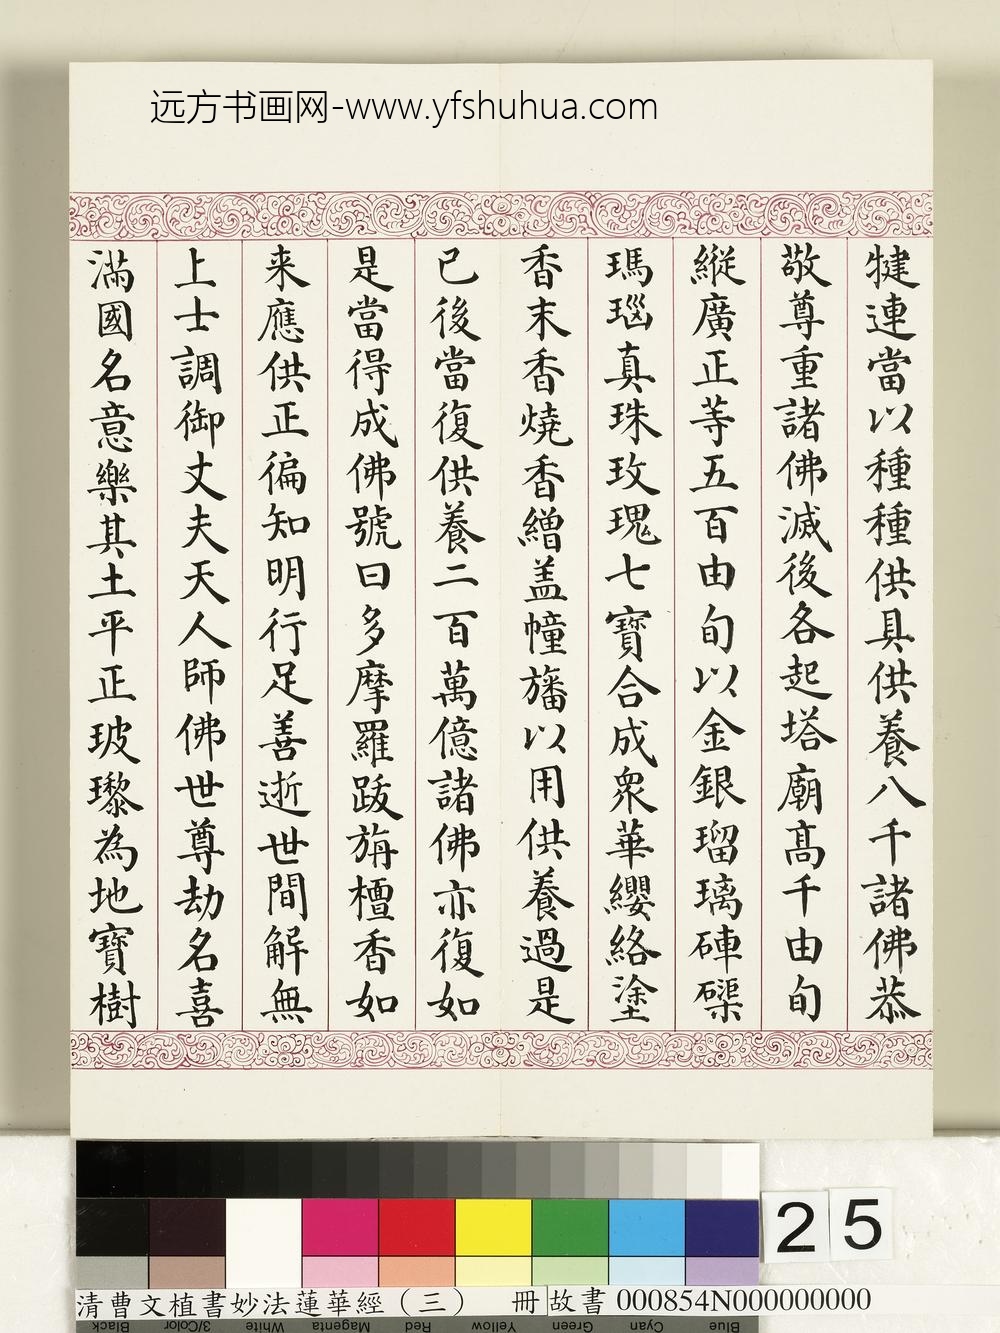 远方书画网-www.yfshuhua.com
犍連當以種種供具供養八千諸佛恭
敬尊重諸佛滅後各起塔廟高千由旬
縱廣正等五百由旬以金銀瑠璃硨磲
瑪瑙真珠玫瑰七寶合成眾華纓絡塗
香末香燒香繒盖幢旛以用供養過是
已後當復供養二百萬億諸佛亦復如
是當得成佛號曰多摩羅跋旃檀香如
来應供正徧知明行足善逝世間解無
上士調御丈夫天人師佛世尊劫名喜
滿國名意樂其土平正玻瓈為地寶樹
25
清曹文植書妙法蓮華經（三） 冊 故書 000854N000000000
Black 3/Color White Magenta Red Yellow Green Cyan Blue